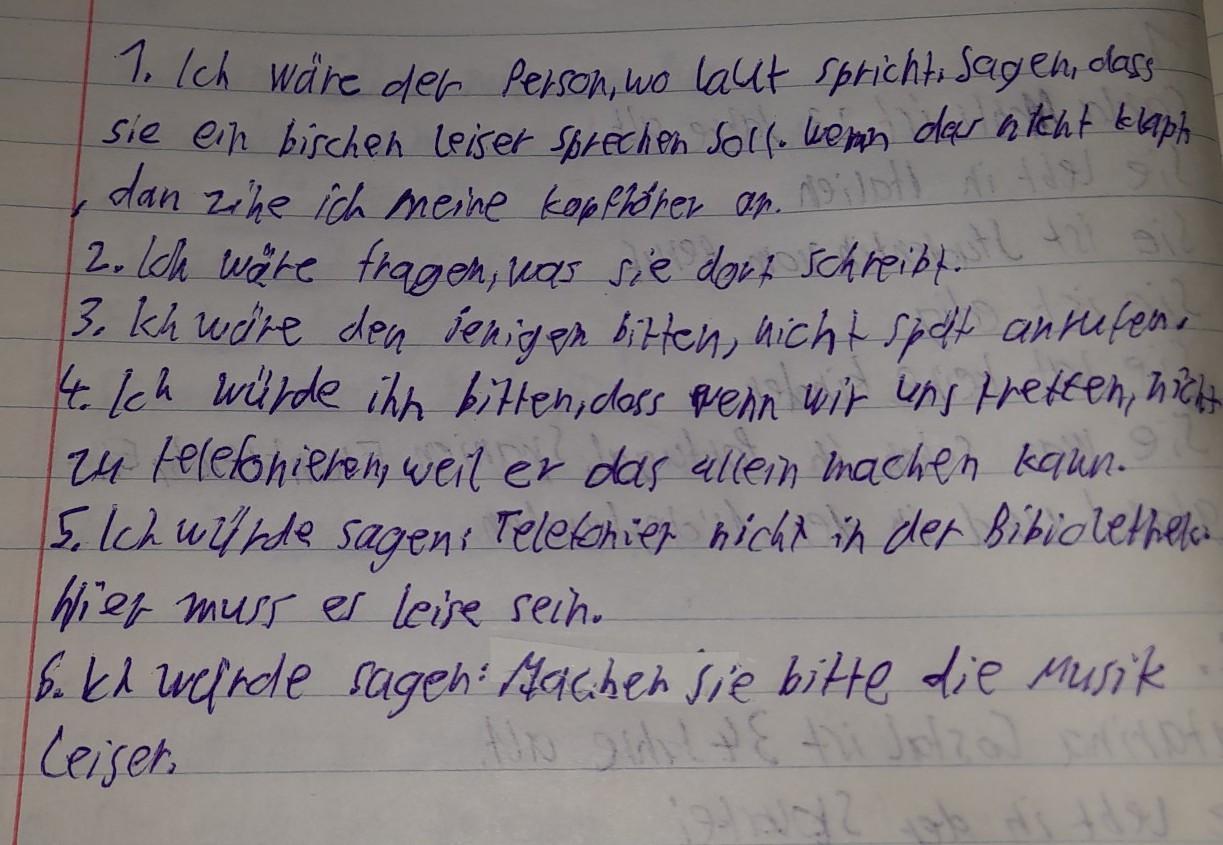 1. Ich wäre der Person, wo laut spricht, sagen, dass
sie ein bischen leiser sprechen soll. wenn das nicht klapt
, dan zihe ich meine kopfhörer an.
2. Ich wäre fragen, was sie dort schreibt.
3. Ich wäre den jenigen bitten, nicht spät anrufen.
4. Ich würde ihn bitten, dass wenn wir uns treffen, nicht
zu telefonieren, weil er das allein machen kann.
5. Ich würde sagen: Telefonier nicht in der Bibiolethek.
Hier muss es leise sein.
6. Ich würde sagen: Machen sie bitte die Musik
leiser.